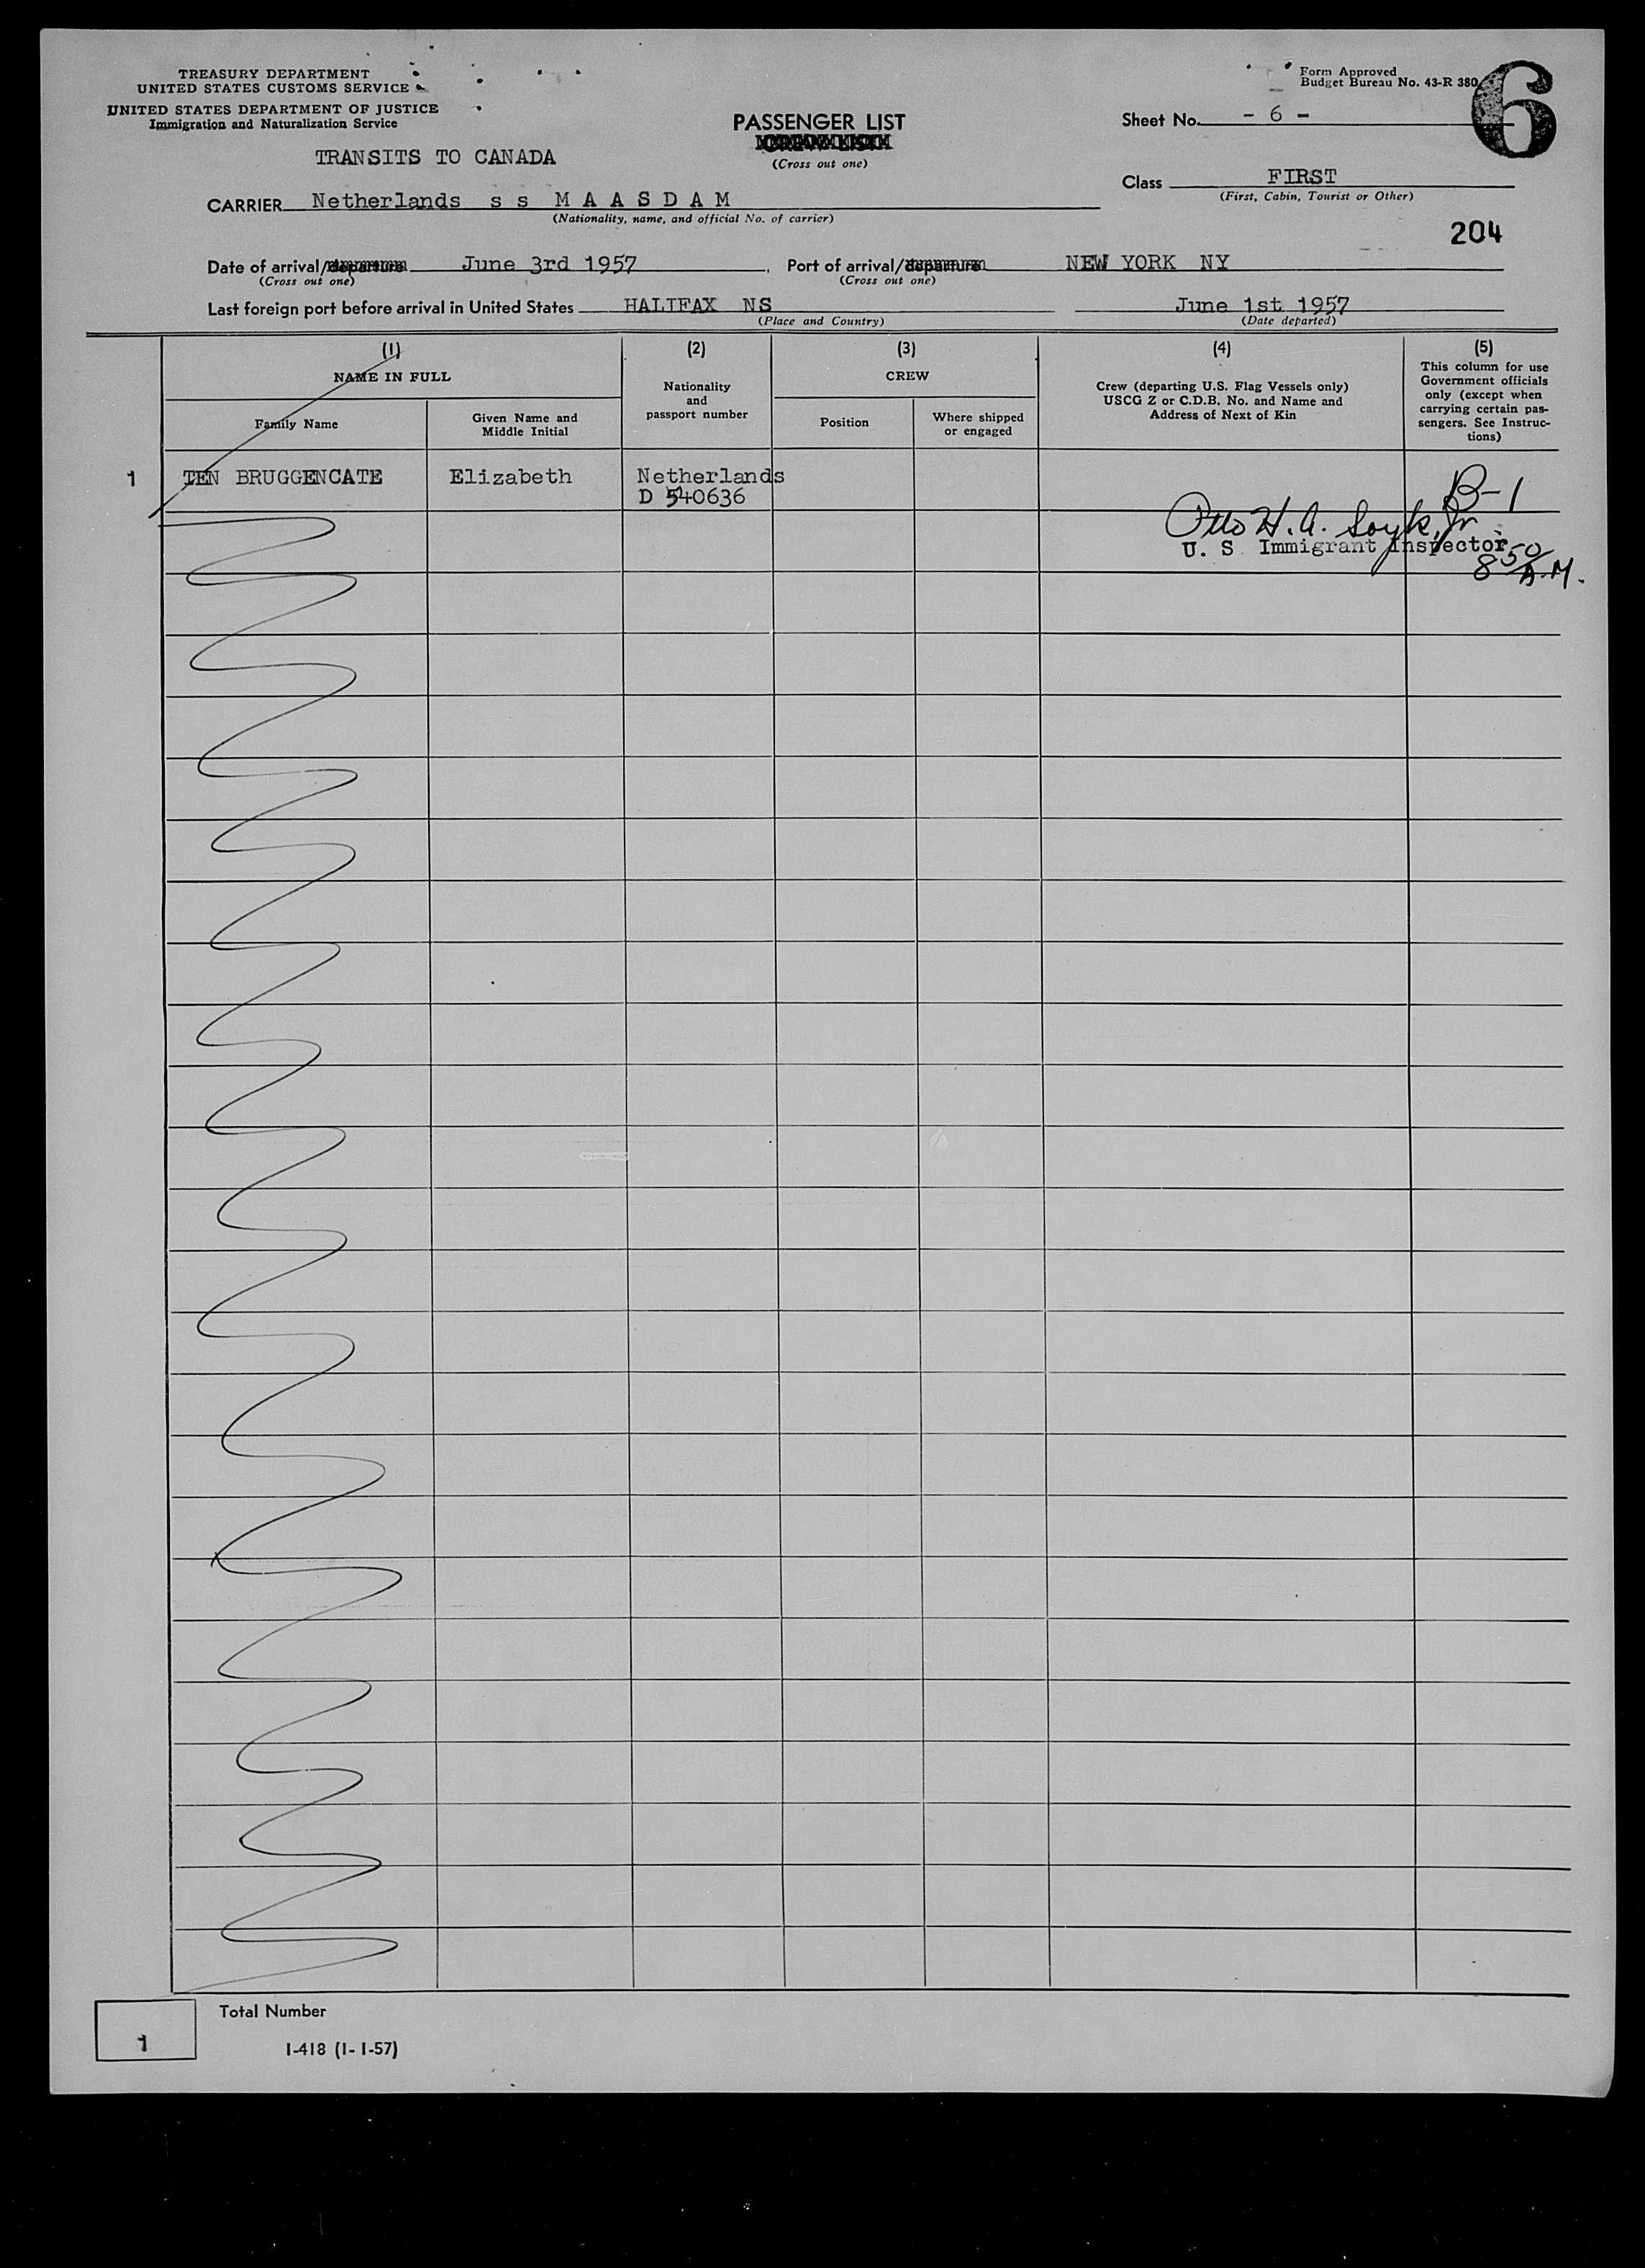 TREASURY DEPARTMENT
UNITED STATES CUSTOMS SERVICE
UNITED STATES DEPARTMENT OF JUSTICE
Immigration and Naturalization Service
TRANSITS TO CANADA
PASSENGER LIST
CREW LIST
(Cross out one)
Form Approved
Budget Bureau No. 43-R 380
6
Sheet No. - 6 -
Class FIRST
(First, Cabin, Tourist or Other)
CARRIER Netherlands s s M A A S D A M
(Nationality, name, and official No. of carrier)
204
Date of arrival/departure June 3rd 1957, Port of arrival/departure NEW YORK NY
(Cross out one) (Cross out one)
Last foreign port before arrival in United States HALIFAX NS June 1st 1957
(Place and Country) (Date departed)
(1) (2) (3) (4) (5)
NAME IN FULL
Family Name
Given Name and
Middle Initial
Nationality
and
passport number
CREW
Position
Where shipped
or engaged
Crew (departing U.S. Flag Vessels only)
USCG Z or C.D.B. No. and Name and
Address of Next of Kin
This column for use
Government officials
only (except when
carrying certain pas-
sengers. See Instruc-
tions)
1 TEN BRUGGENCATE Elizabeth Netherlands B-1
D 540636
Otto H. A. Jr.
U. S Immigrant Inspector
8 50 A.M.
Total Number
1
I-418 (1-1-57)